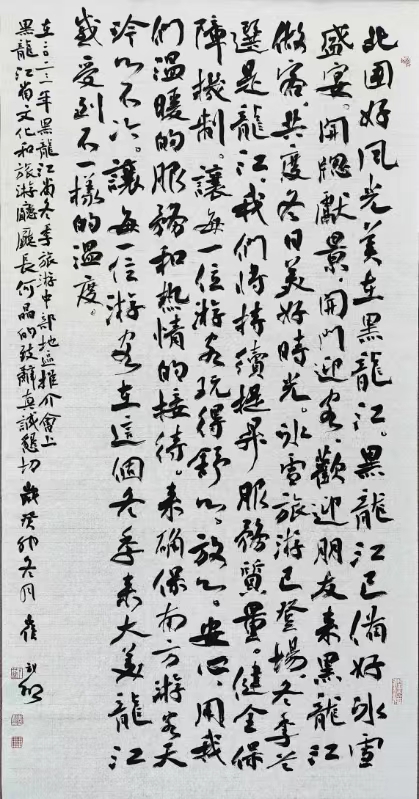 北国好风光美在黑龍江。黑龍江已備好冰雪
盛宴。開窓獻景、開門迎客、歡迎朋友来黑龍江
做客。共度冬日美好時光。冰雪旅游已登場、冬季首
選是龍江我們將持續提昇服務質量。健全保
障機制。讓每一位游客玩得舒心。放心。安心、用我
們温暖的服務和热情的接待。来确保南方游客天
冷心不冷。讓每一位游客在這個冬季来大美龍江
感受到不一樣的温度。
在二〇二三年黑龍江省冬季旅游中部地區推介會上
黑龍江省文化和旅游廳廳長何晶的致辭真誠懇切 歲癸卯冬月 崔